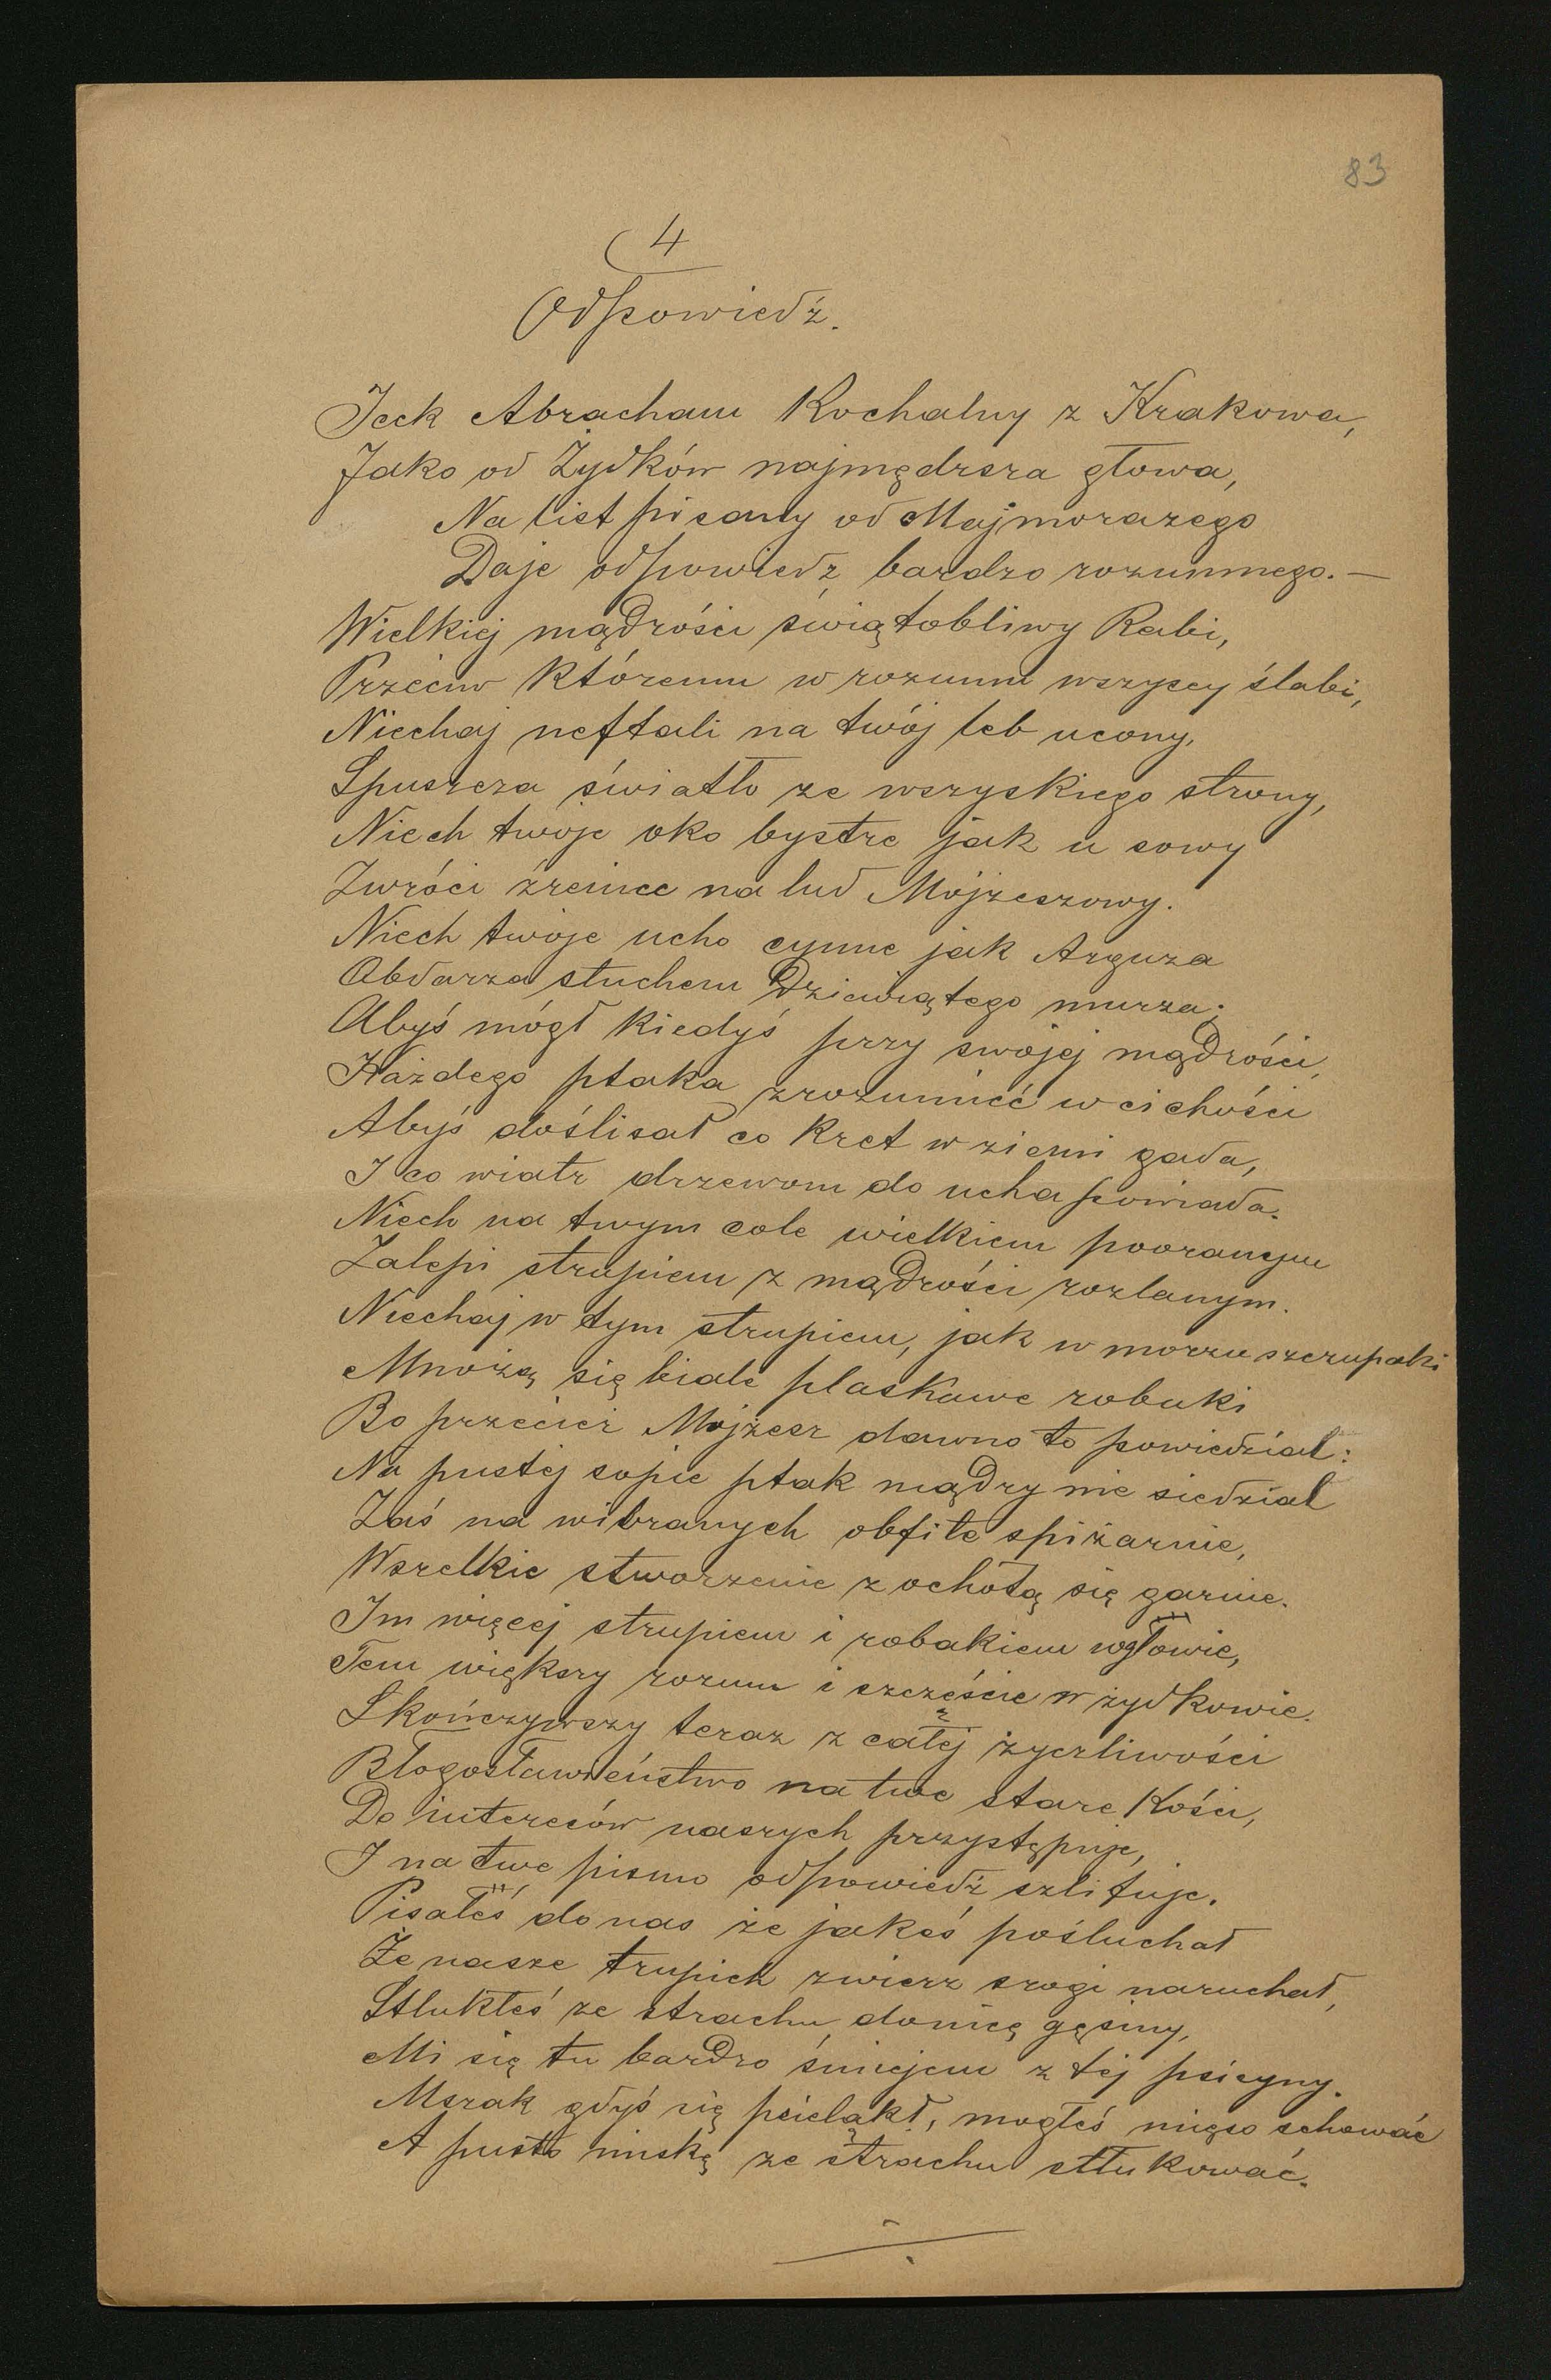 83
4
Odpowiedź.
Jeck Abracham Kochalny z Krakowa,
Jako od Żydków najmędrsza głowa,
Na list pisany od Majmorazego
Daje odpowiedź bardzo rozumnego. —
Wielkiej mądrości świątobliwy Rabi,
Przeciw któremu w rozumu wszyscy ślabi,
Niechaj neftali na twój łeb ucony,
Spuszcza światło ze wszyskiego strony,
Niech twoje oko bystre jak u sowy
Zwróci źrenice na lud Mojżeszowy.
Niech twoje ucho cujne jak Arguza
Obdarza słuchem Dziewiątego murza;
Abyś mógł kiedyś przy swojej mądrości,
Każdego ptaka zrozumieć w cichości
Abyś doślisał co kret w ziemi gada,
I co wiatr drzewom do ucha powiada.
Niech na twym cole wielkiem pooranym
Zalepi strupiem z mądrości rozlanym.
Niechaj w tym strupiem, jak w morzu szczupaki
Mnożą się biale plaskawe robaki
Bo przecież Mojżesz dawno to powiedzial:
Na pustej sopie ptak mądry nie siedzial
Zaś na wibranych obfite spiżarnie,
Wszelkie stworzenie z ochotą się garnie.
Im więcej strupiem i robakiem w głowie,
Tem większy rozum i szczęście w żydkowie.
Skończywszy teraz z całej życzliwości
Błogosławieństwo na twe stare kości,
Do interesów naszych przystępuje,
I na twe pismo odpowiedź szlifuje.
Pisałeś do nas że jakeś pośluchał
Że nasze trupich zwierz srogi naruchał,
Stlukłeś ze strachu donicę gęsiny,
Mi się tu bardzo śmiejem z tej psicyny.
Mszak gdyś się psieląkł, mogłeś mięso schować
A pusto miskę ze strachu stłukować.